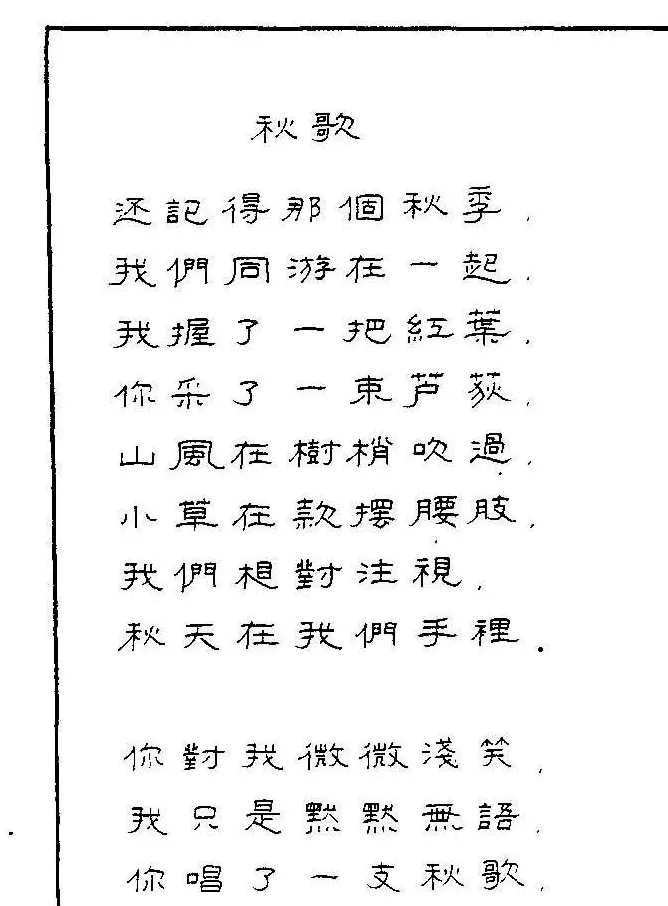 秋歌
还記得那個秋季，
我們同游在一起，
我握了一把紅葉，
你采了一束芦荻，
山風在樹梢吹過，
小草在款擺腰肢，
我們相對注視，
秋天在我們手裡．
你對我微微淺笑，
我只是黙黙無語，
你唱了一支秋歌，